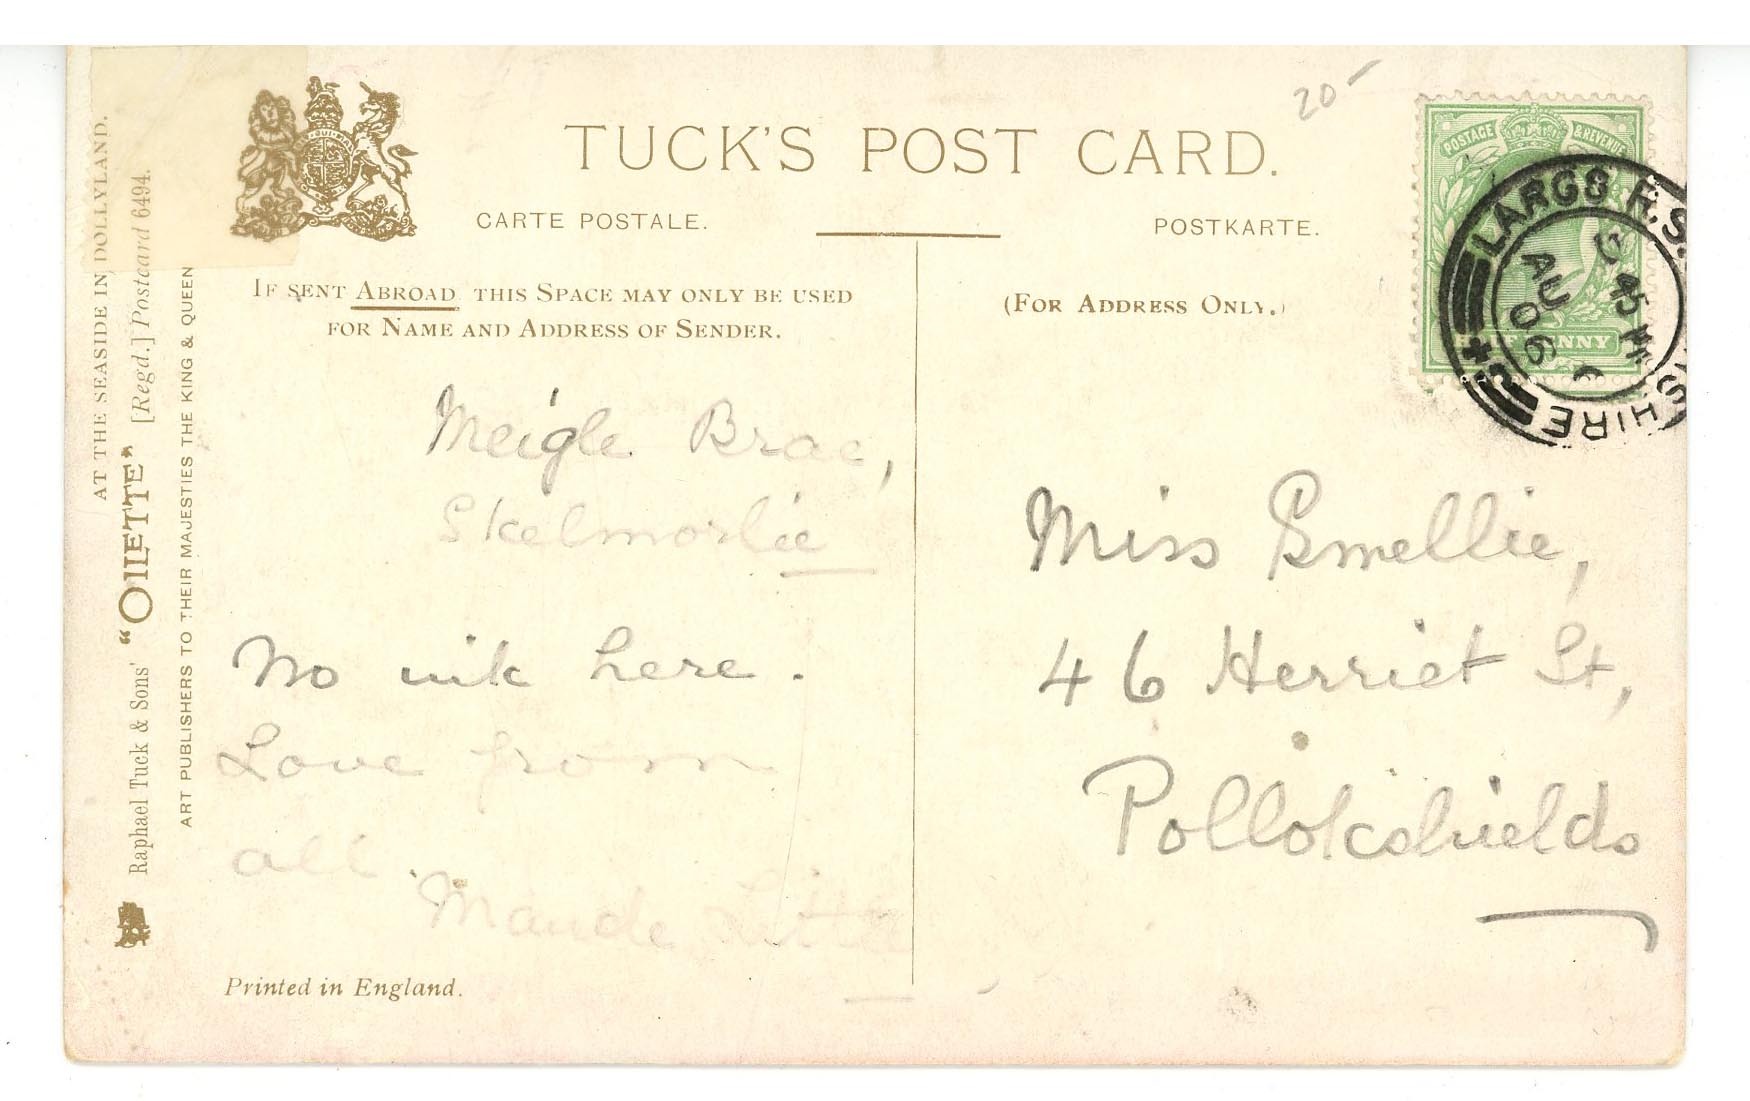 20-
TUCK'S POST CARD.
CARTE POSTALE.
POSTKARTE.
POSTAGE & REVENUE
HALF PENNY
LARGS R.S.
AU 6
06
SHIRE
AT THE SEASIDE IN DOLLYLAND.
Raphael Tuck & Sons' "OILETTE" [Regd.] Postcard 6494.
ART PUBLISHERS TO THEIR MAJESTIES THE KING & QUEEN
IF SENT ABROAD THIS SPACE MAY ONLY BE USED
FOR NAME AND ADDRESS OF SENDER.
Meigle Brae,
Skelmorlie
No ink here.
Love from
all
Maude
Printed in England.
(FOR ADDRESS ONLY.)
Miss Smellie,
46 Herriet St,
Pollokshields